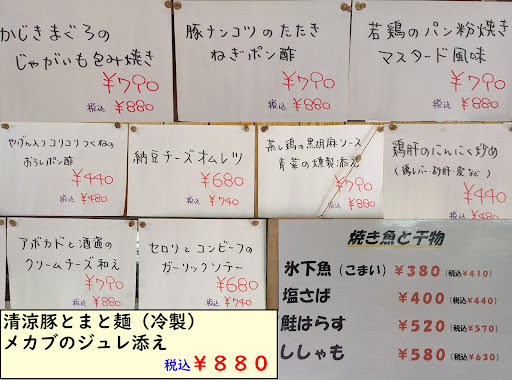 かじきまぐろの
じゃがいも包み焼き
¥790
税込 ¥880
豚ナンコツのたたき
ねぎポン酢
¥790
税込 ¥880
若鶏のパン粉焼き
マスタード風味
¥790
税込 ¥880
やげん入りコリコリつくねの
おろしポン酢
¥440
税込 ¥480
納豆チーズオムレツ
¥680
税込 ¥740
蒸し鶏の黒胡麻ソース
青菜の燻製添え
¥790
税込 ¥880
鶏肝のにんにく炒め
(鶏レバー・砂肝・皮など)
¥440
税込 ¥480
アボカドと酒盗の
クリームチーズ和え
¥790
税込 ¥880
セロリとコンビーフの
ガーリックソテー
¥680
税込 ¥740
焼き魚と干物
氷下魚(こまい) ¥380(税込¥410)
塩さば ¥400(税込¥440)
鮭はらす ¥520(税込¥570)
ししゃも ¥580(税込¥630)
清涼豚とまと麺(冷製)
メカブのジュレ添え
税込¥880